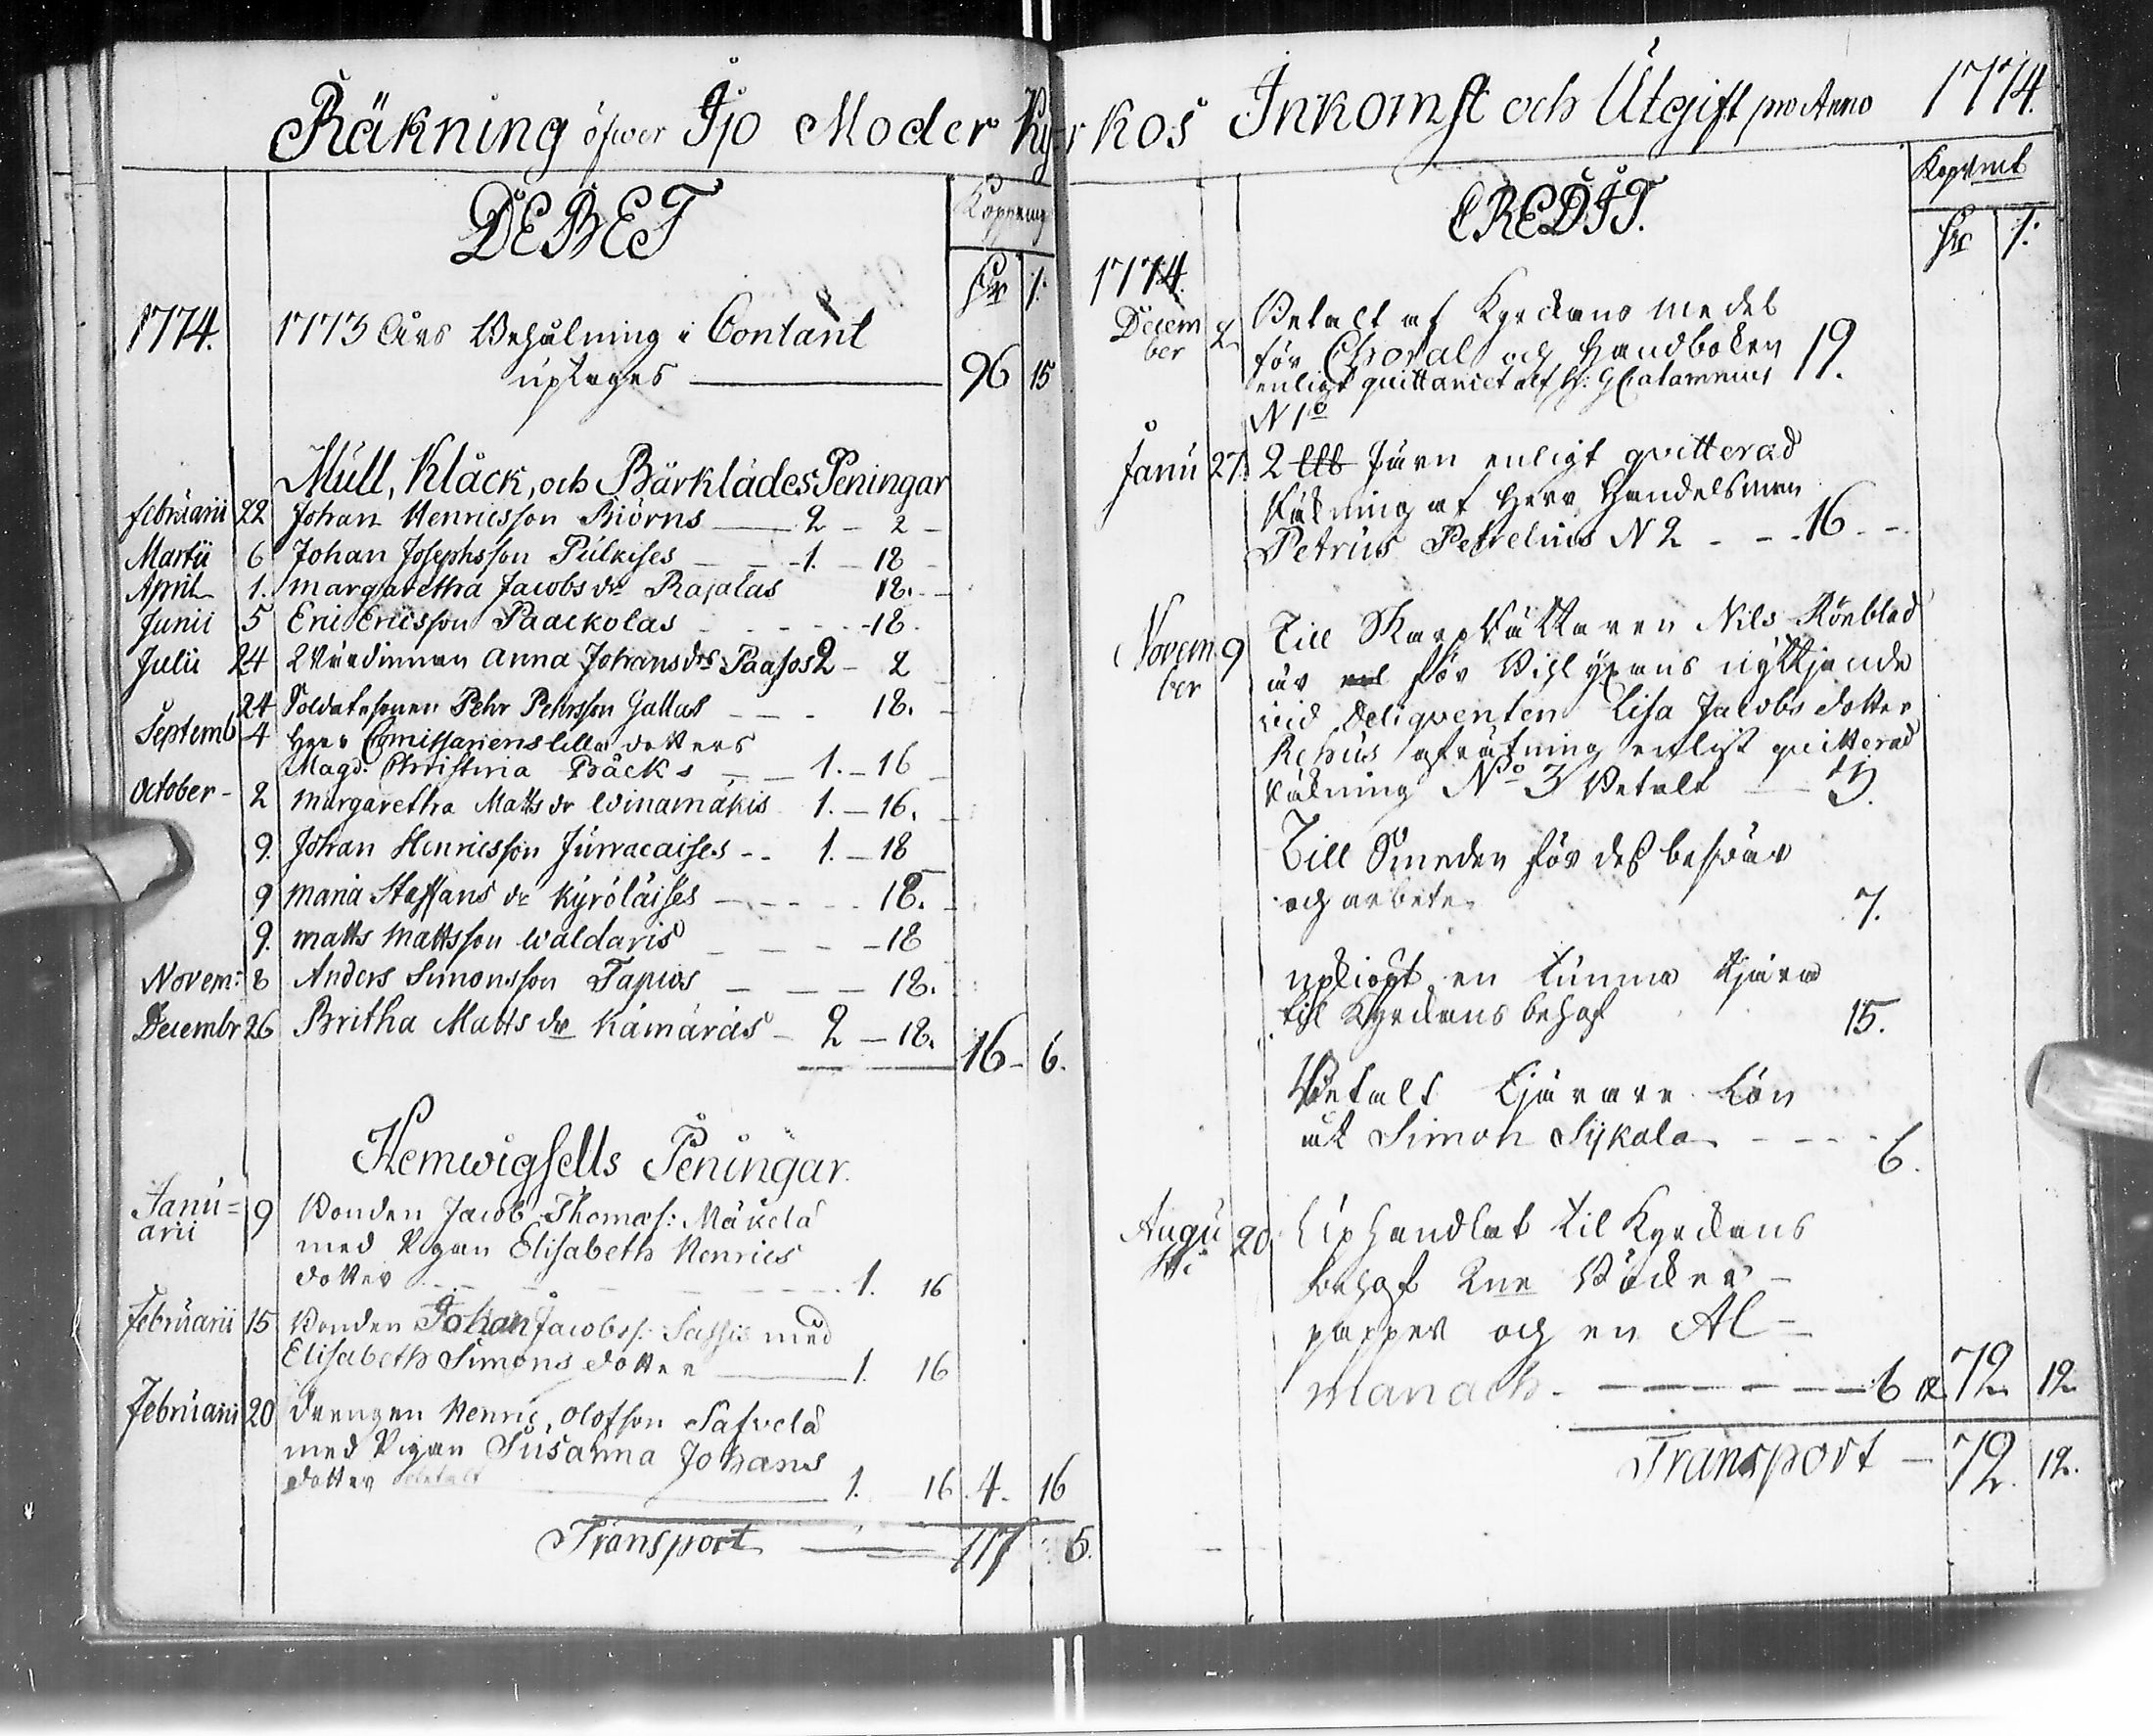 Räkning öfwer Ijo Moder Kyrkos Inkomst och Utgift pro Anno 1774.
DEBET
Koppmt
Dr 1:
1774. 1773 Års Behålning i Contant
uptages 96 15
Mull, Klåck, och Bårklädes Peningar
Februarii 22 Johan Henricsson Biörns 2 - 2 -
Martii 6 Johan Josephsson Pulkises 1. - 18 -
April 1. Margaretha Jacobs dr Rajalas 18. -
Junii 5 Eric Ericsson Paackolas 18.
Julii 24 Wärdinnan Anna Johans drs Paasos 2 - 2
24 Soldatesonen Pehr Pehrsson Gallus 18. -
Septemb 4 Herr Comissariens lilla dotters
Magd. Christina Bäcks 1. - 16
October - 2 Margaretha Matts dr Winamäkis 1. - 16.
9. Johan Henricsson Jurracaises 1. - 18
9 Maria Staffans dr Kyröläises 18.
9. Matts Mattsson Waldaris 18
Novem: 8 Anders Simonsson Tapios 18.
Decembr 26 Britha Matts dr Kämäräs - 2 - 18. 16 - 6.
Hemwigsells Peningar.
Janu=
arii 9 Bonden Jacob Thomas: Mäkelä
med Pigan Elisabeth Henrics
dotter 1. 16
Februarii 15 Bonden Johan Jacobss: Sassis med
Elisabeth Simons dotter 1. 16
Februarii 20 Drengen Henric Olofson Safvelä
med Pigan Susanna Johans
dotter betalt 1. 16 4. 16
Transport 117 5.
CREDIT.
Kopvmt
Dr 1:
1774.
Decem
ber 2 Betalt af Kyrkans medel
för Choral och Handboken 19.
enligt quittancet af H: G Calamnius
N 1o
Janu 27. 2 Järn enligt qvitterad
Räkning af Herr Handelsman
Petrus Petrelius N 2 - - - 16 - -
Novem
ber 9 Till Skarprättaren Nils Rönblad
är för Bihlyxans nyttjande
vid Deliqventen Lisa Jacobs dotter
Rehus afrätning enligt quitterad
Räkning No 3 Betalt 3.
Till Smeden för dess besvär
och arbete 7.
upkiöpt en tunna tjära
til Kyrkans behof 15.
Betalt Tjärare Lön
åt Simon Sijkala 6.
Augu
sti 20. Uphandlat til Kyrkans
behof Böcker
papper och en Al=
manach. 6 12 72. 12.
Transport 72. 12.